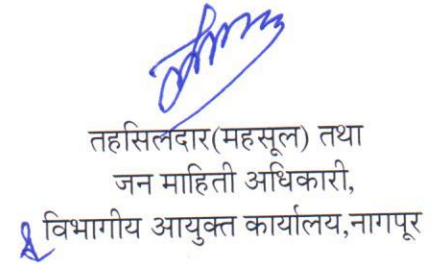 तहसिलदार(महसूल) तथा
जन माहिती अधिकारी,
विभागीय आयुक्त कार्यालय,नागपूर